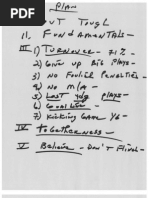 Plan
OUT TOUGH
II. FUNDAMENTALS
III 1) TURNOVER - 71%
2) GIVE UP BIG PLAYS -
3) NO FOOLISH PENALTIES -
4) NO M/A -
5) LAST YDG PLAYS -
6) GOAL LINE -
7) KICKING GAME Y6 -
IV TOGETHERNESS -
V BELIEVE - DON'T FLINCH -